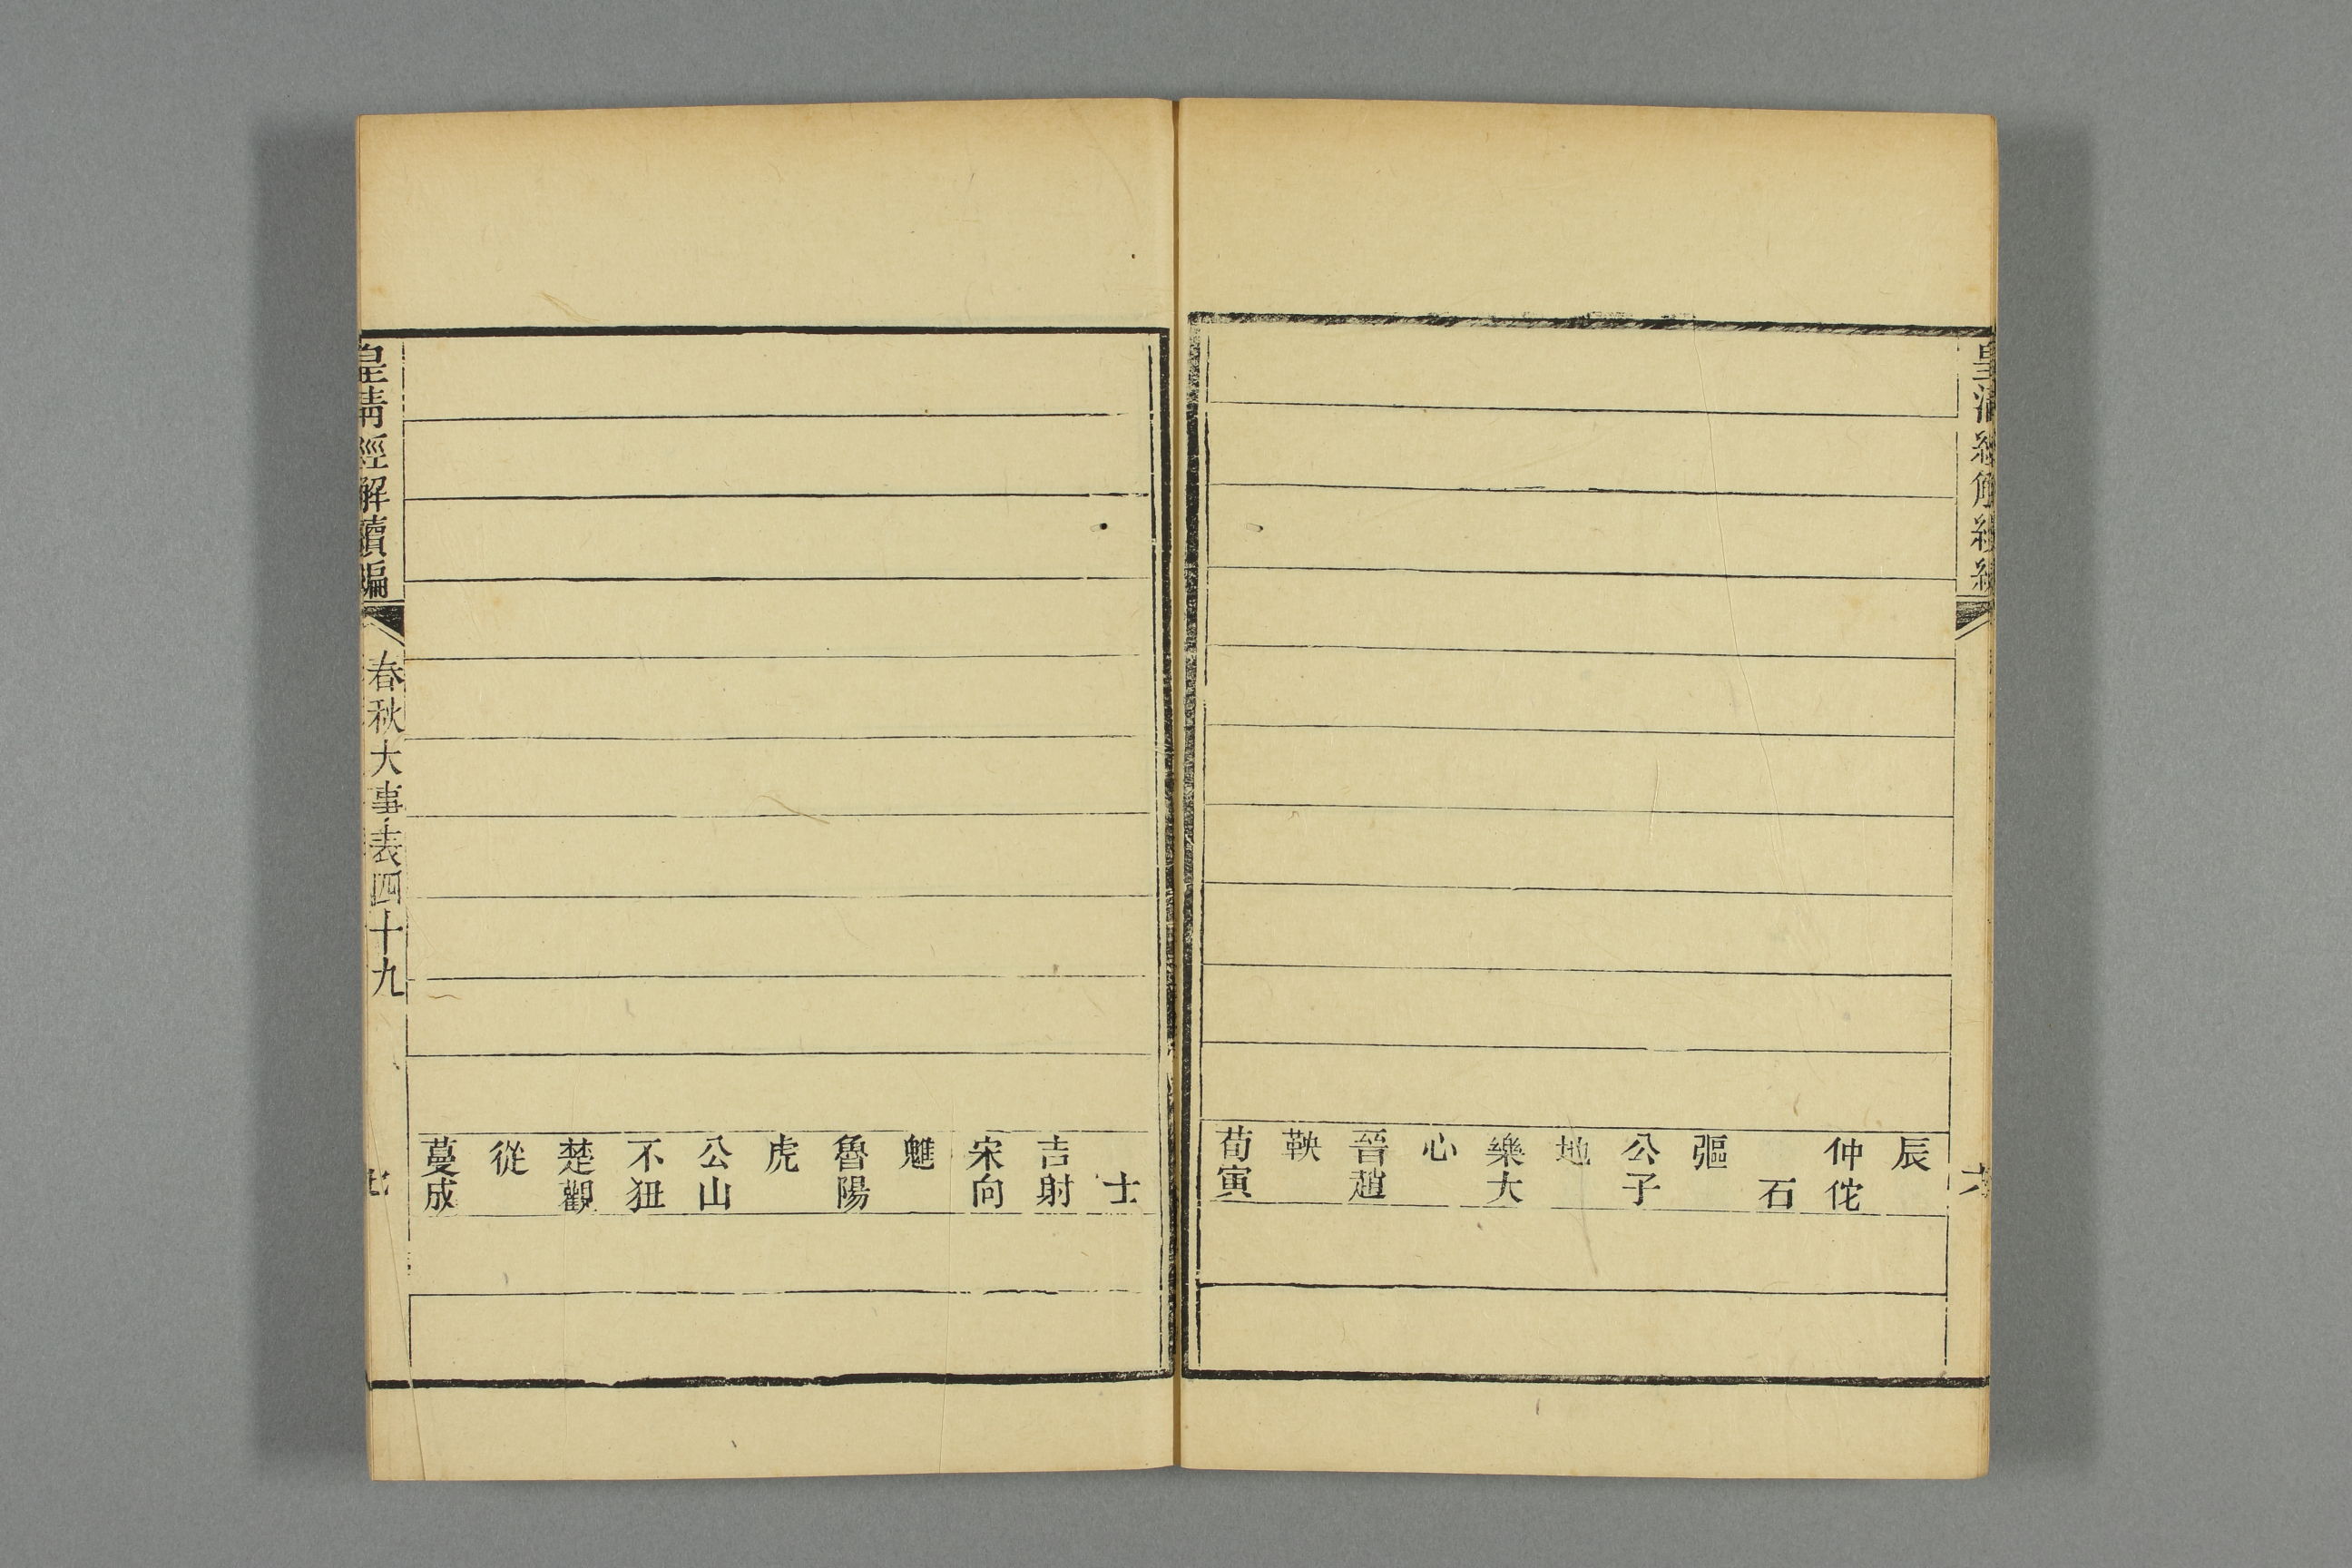 辰
仲佗
石
彄
公子
地
樂大
心
晉趙
鞅
荀寅
士
吉射
宋向
魋
魯陽
虎
公山
不狃
楚觀
從
蔓成
皇清經解續編
春秋大事表四十九